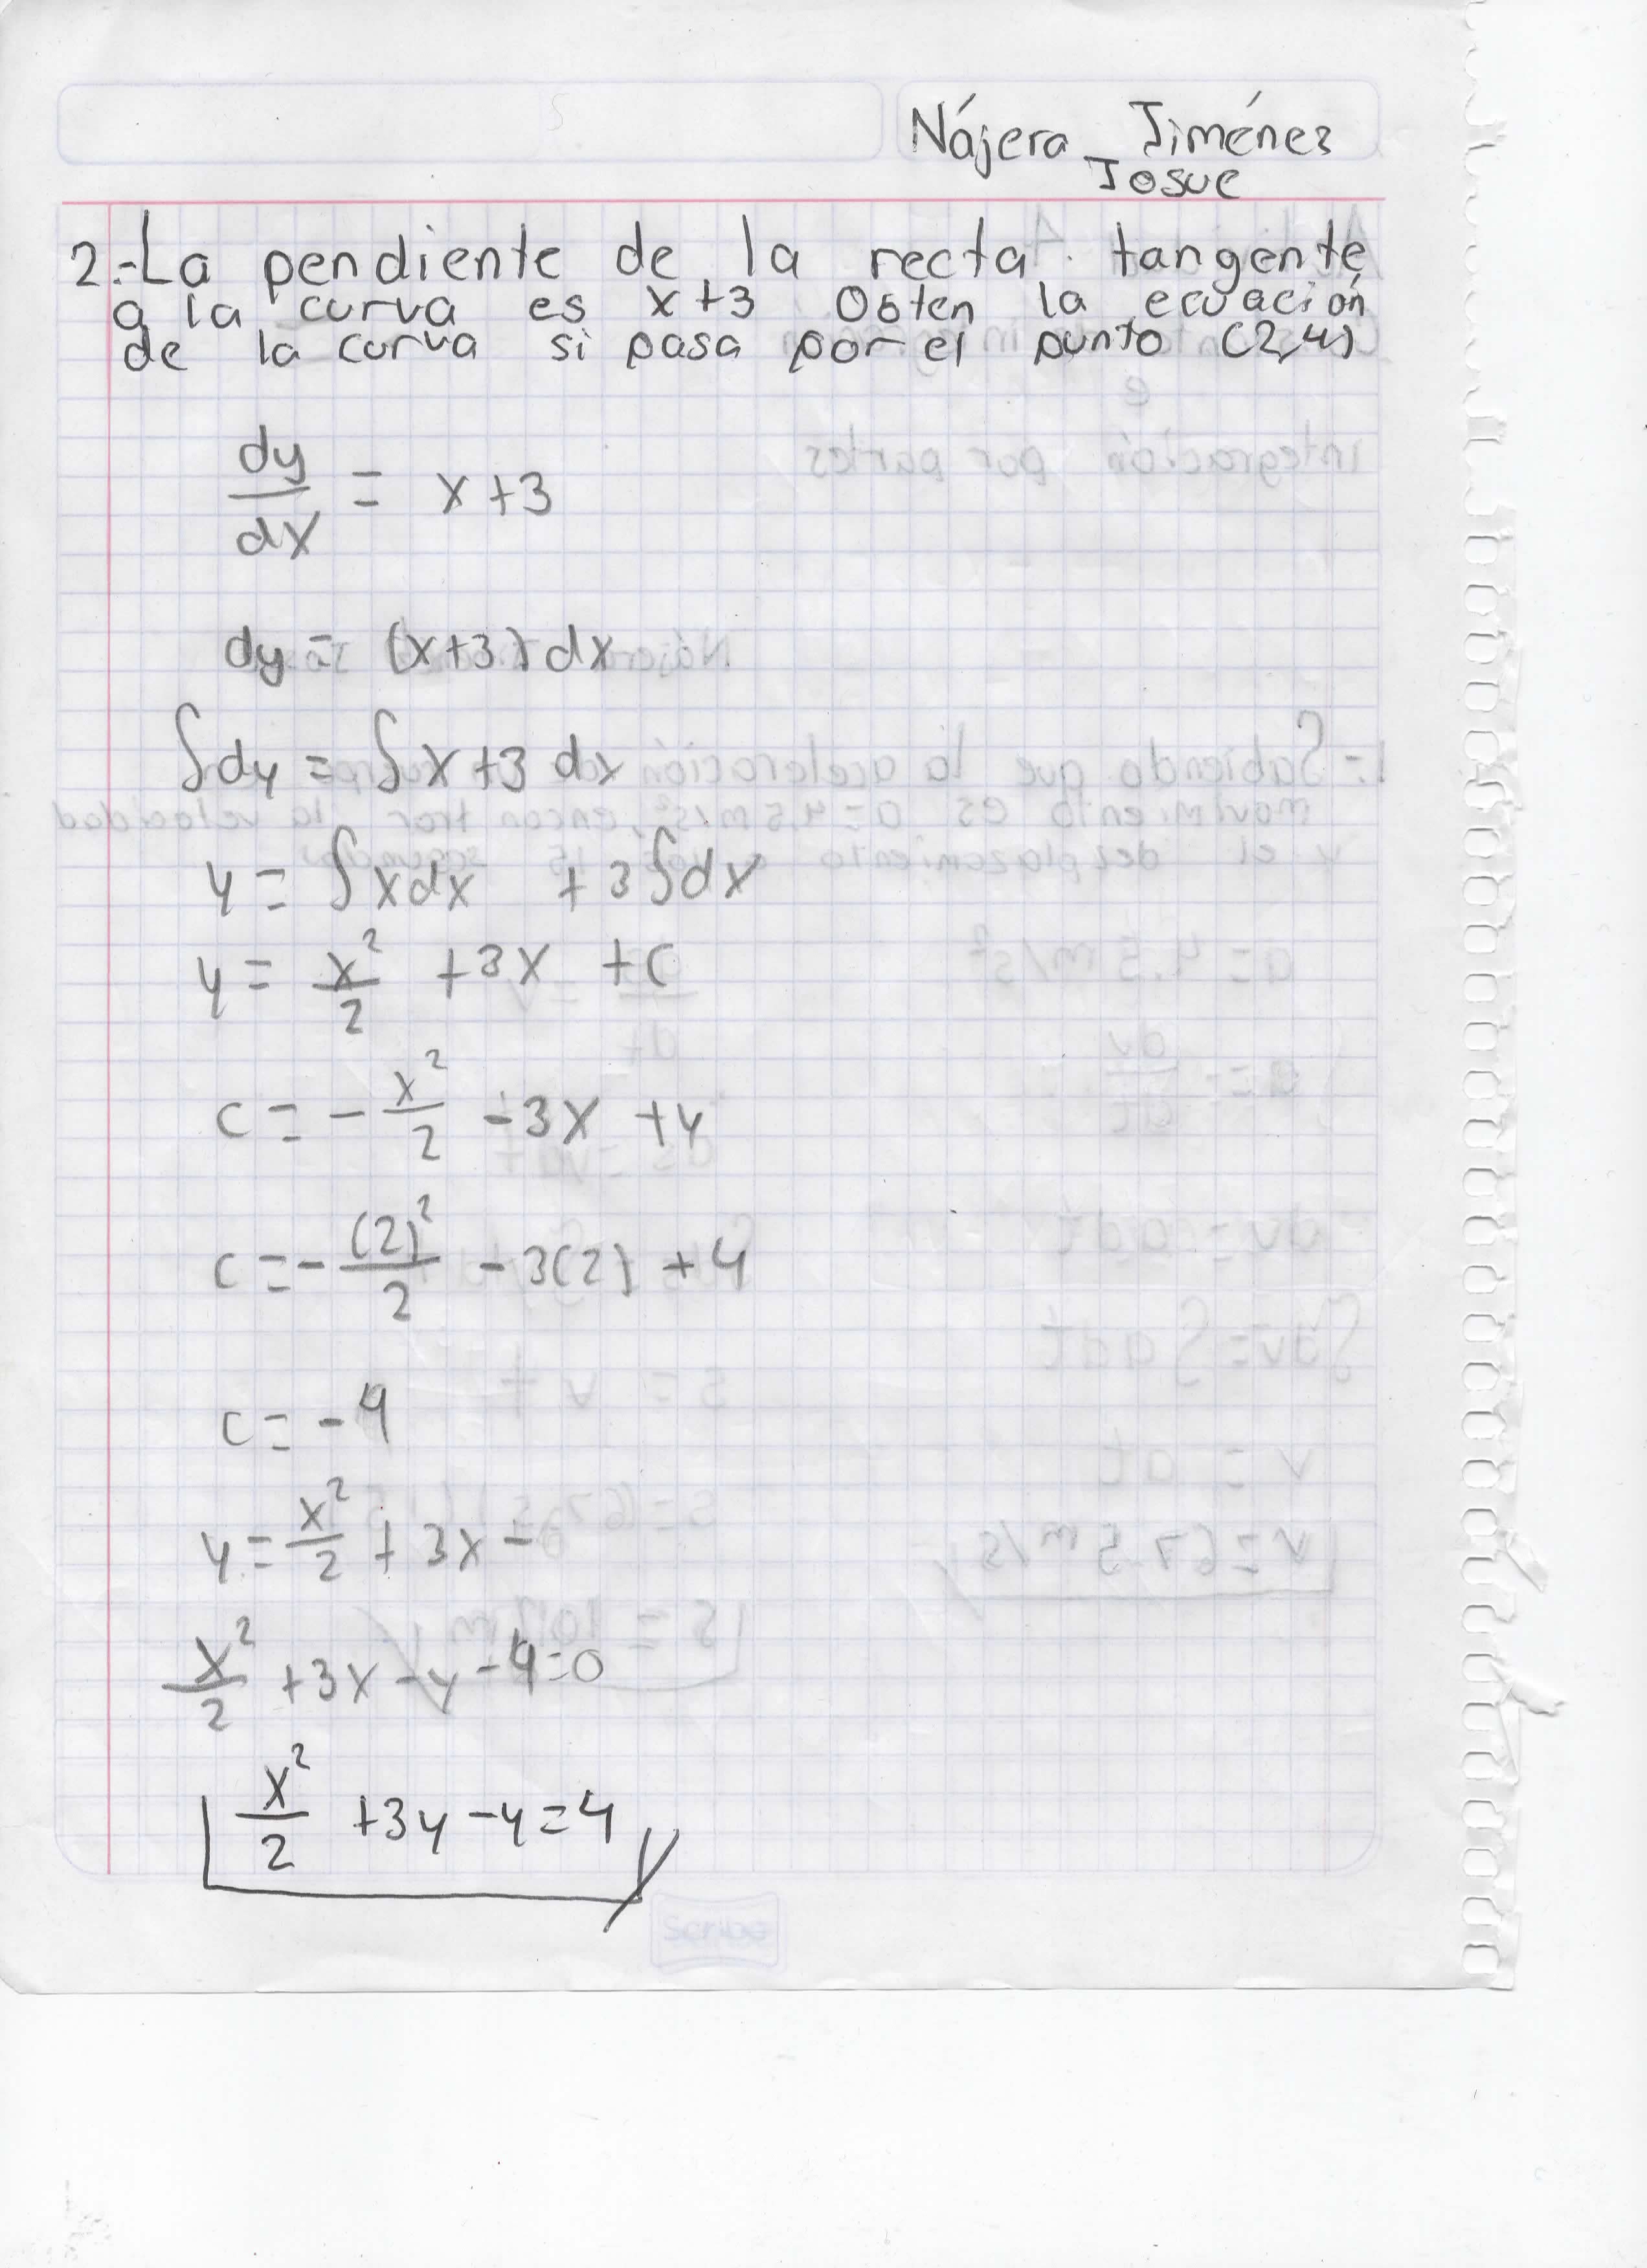 Nájera Jiménez
Josue
2.-La pendiente de la recta tangente
a la curva es x+3 Obten la ecuación
de la curva si pasa por el punto (2,4)
dy/dx = x+3
dy= (x+3)dx
∫dy = ∫x+3 dx
y = ∫xdx +3∫dx
y = x²/2 +3x +c
c = -x²/2 -3x +y
c = -(2)²/2 -3(2) +4
c = -4
y = x²/2 + 3x -
x²/2 +3x -y -4=0
x²/2 +3y -y=4
Scribe